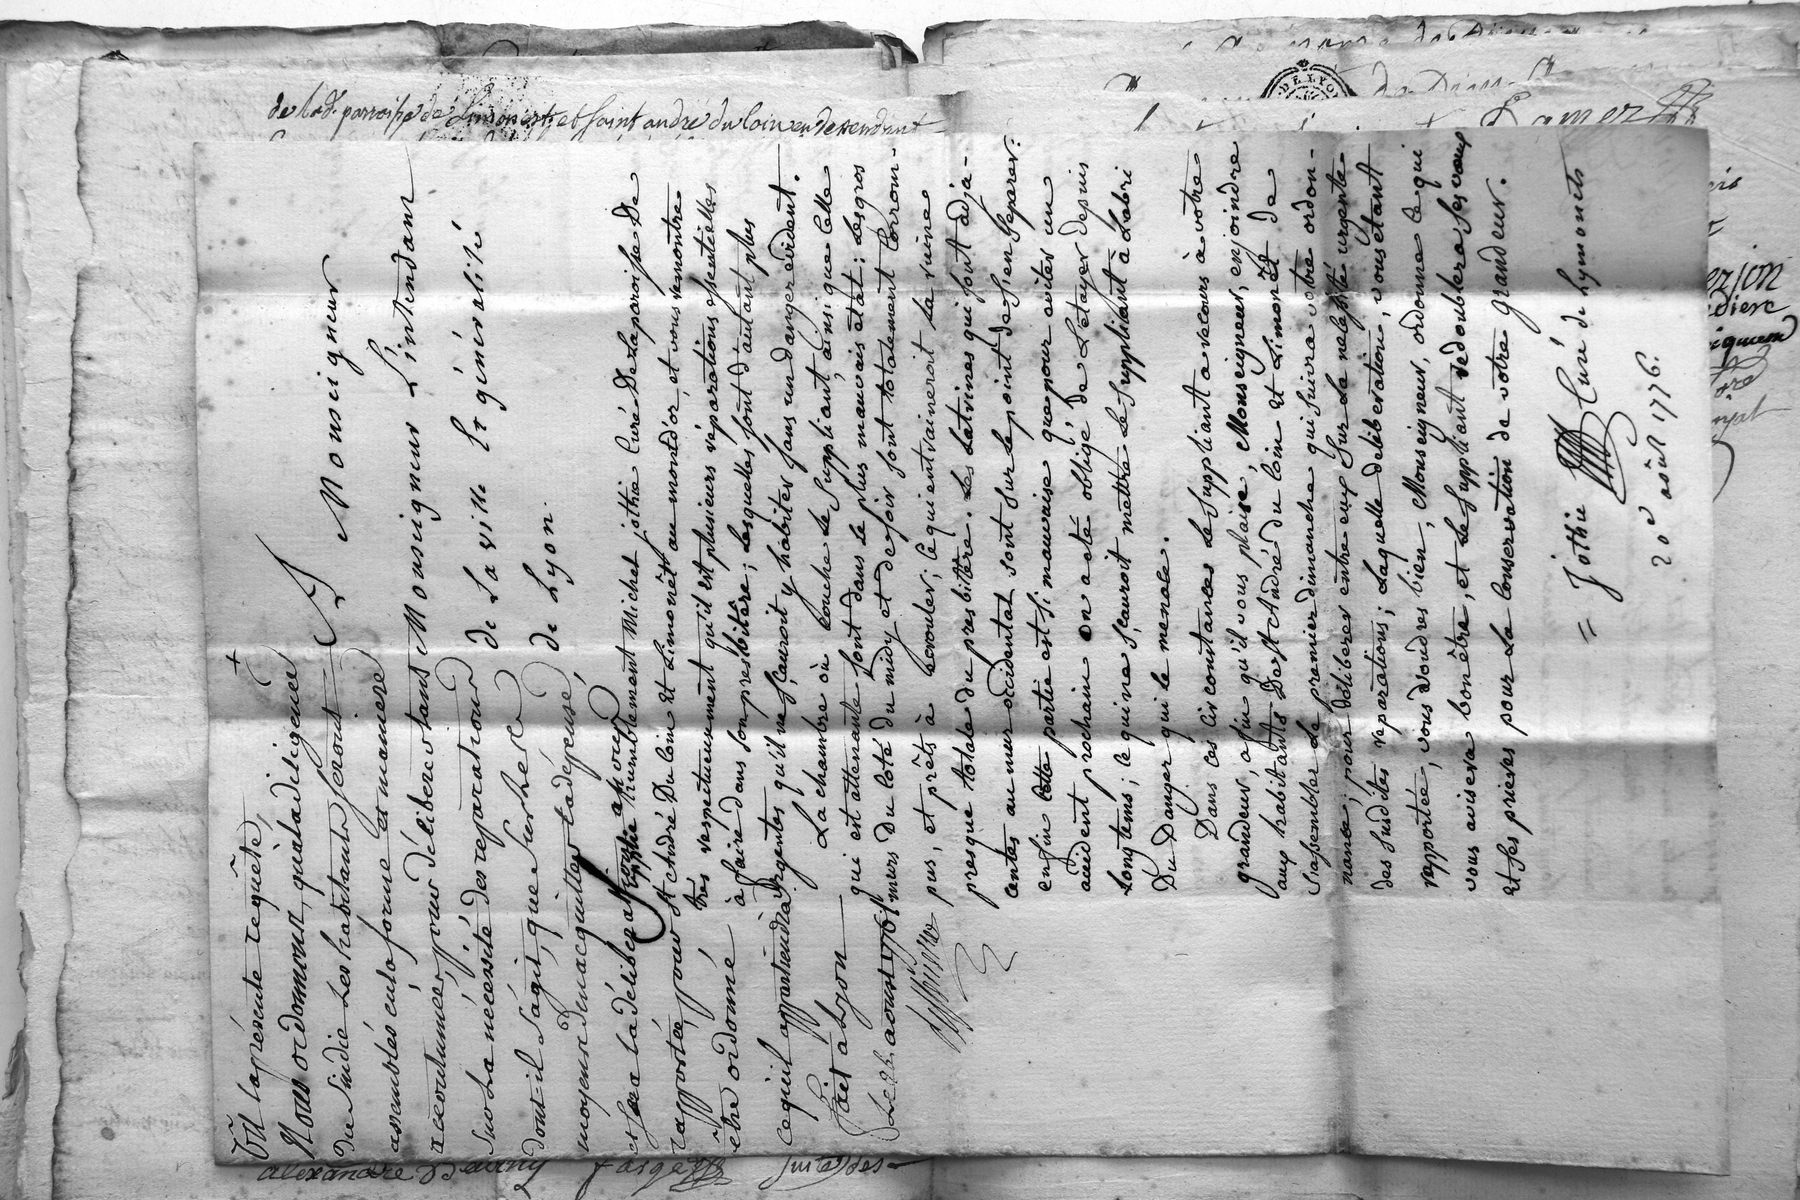 de lad. parroisse de Limonest et saint andré du coin en descendant
Vû la présente requête,
Nous ordonnons, qu'à la diligence
du Sindic Les habitants seront
assemblés en la forme et maniere
accoutumée, pour délibérer tans
sur la nécessité des reparations
dont-il s'agit, que sur Les
moyens d'en acquitter la dépense,
et sera la délibération à nous
rapportée, pour
être ordonné
ce qu'il appartiendra
fait à Lyon
Le 22 aoust 1776
A
Monseigneur
Monseigneur L'intendant
de La ville Et généralité
de Lyon
Supplie humblement Michel jothie Curé De La paroisse De
St André Du Coin et Limonêt au mond'or, et vous remontre
très respectueusement qu'il est plusieurs réparations essentielles
à faire dans son presbitère; lesquelles sont d'autant plus
urgentes qu'il ne sçauroit y habiter sans un danger évident.
La chambre où couche le suppliant, ainsi que celle
qui est attenante sont dans le plus mauvais etat: Les gros
murs Du coté du midy et de soir sont totalement corrom-
pus, et prêts à ecrouler; ce qui entraineroit la ruine
presque totale du presbittère. Les Latrines qui sont adja-
centes au mur occidental sont sur le point de s'en séparer:
enfin cette partie est si mauvaise que pour eviter un
accident prochain on a eté obligé de L'etayer depuis
Longtems; ce qui ne sçauroit mettre Le suppliant à L'abri
Du Danger qui le menace.
Dans ces circonstances Le suppliant a recours à votre
grandeur, afin qu'il vous plaise, Monseigneur, enjoindre
aux habitants De St André du Coin et Limonêt de
s'assembler Le premier dimanche qui suivra votre ordon-
nance; pour délibérer entre eux sur La necessité urgente
des susdites reparations; Laquelle delibération, vous etant
rapportée, vous voudres bien, Monseigneur, ordonner ce qui
vous avisera bon être, et Le suppliant redoublera ses vœux
et ses prieres pour La conservation de votre grandeur.
= Jothie Curé de Lymonets
20 août 1776.
alexandre farge